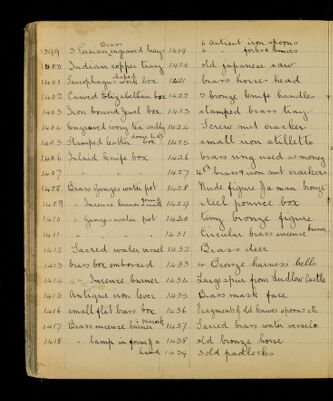 Brass
1399 3 Persian engraved trays 1419 6 antient iron spoons
6 " forks & knives
1400 Indian copper tray 1420 old Japanese saw
shaped
1401 Sarcophagus work box 1421 brass horse head
1402 Carved Elizabethan box 1422 2 bronze knife handles
1403 Iron bound Jewel box 1423 stamped brass tray
1404 Engraved ivory tea caddy 1424 Screw nut cracker
1405 Stamped leather box 1425 small iron stilletto
1406 Inlaid knife box 1426 brass ring used as money
1407 " " " 1427 4 brass & iron nut crackers
1408 Brass Ganges water pot 1428 Nude figure of a man bronze
1409 " Incense burner 1429 steel pounce box
1410 " Ganges water pot 1430 tiny bronze figure
1411 " " " 1431 Circular brass incense burner
1412 Sacred water vessel 1432 Brass deer
1413 brass box embossed 1433 4 Bronze harness bells
1414 " Incense burner 1434 Large spur from Ludlow Castle
1415 Antique iron lever 1435 Brass mask face
1416 small flat brass box 1436 Fragments of old knives spoons etc
a peacock
1417 Brass incense burner 1437 Sacred brass water vessels
1418 " lamp in form of a 1438 old bronze horse
hand 1439 3 old padlocks